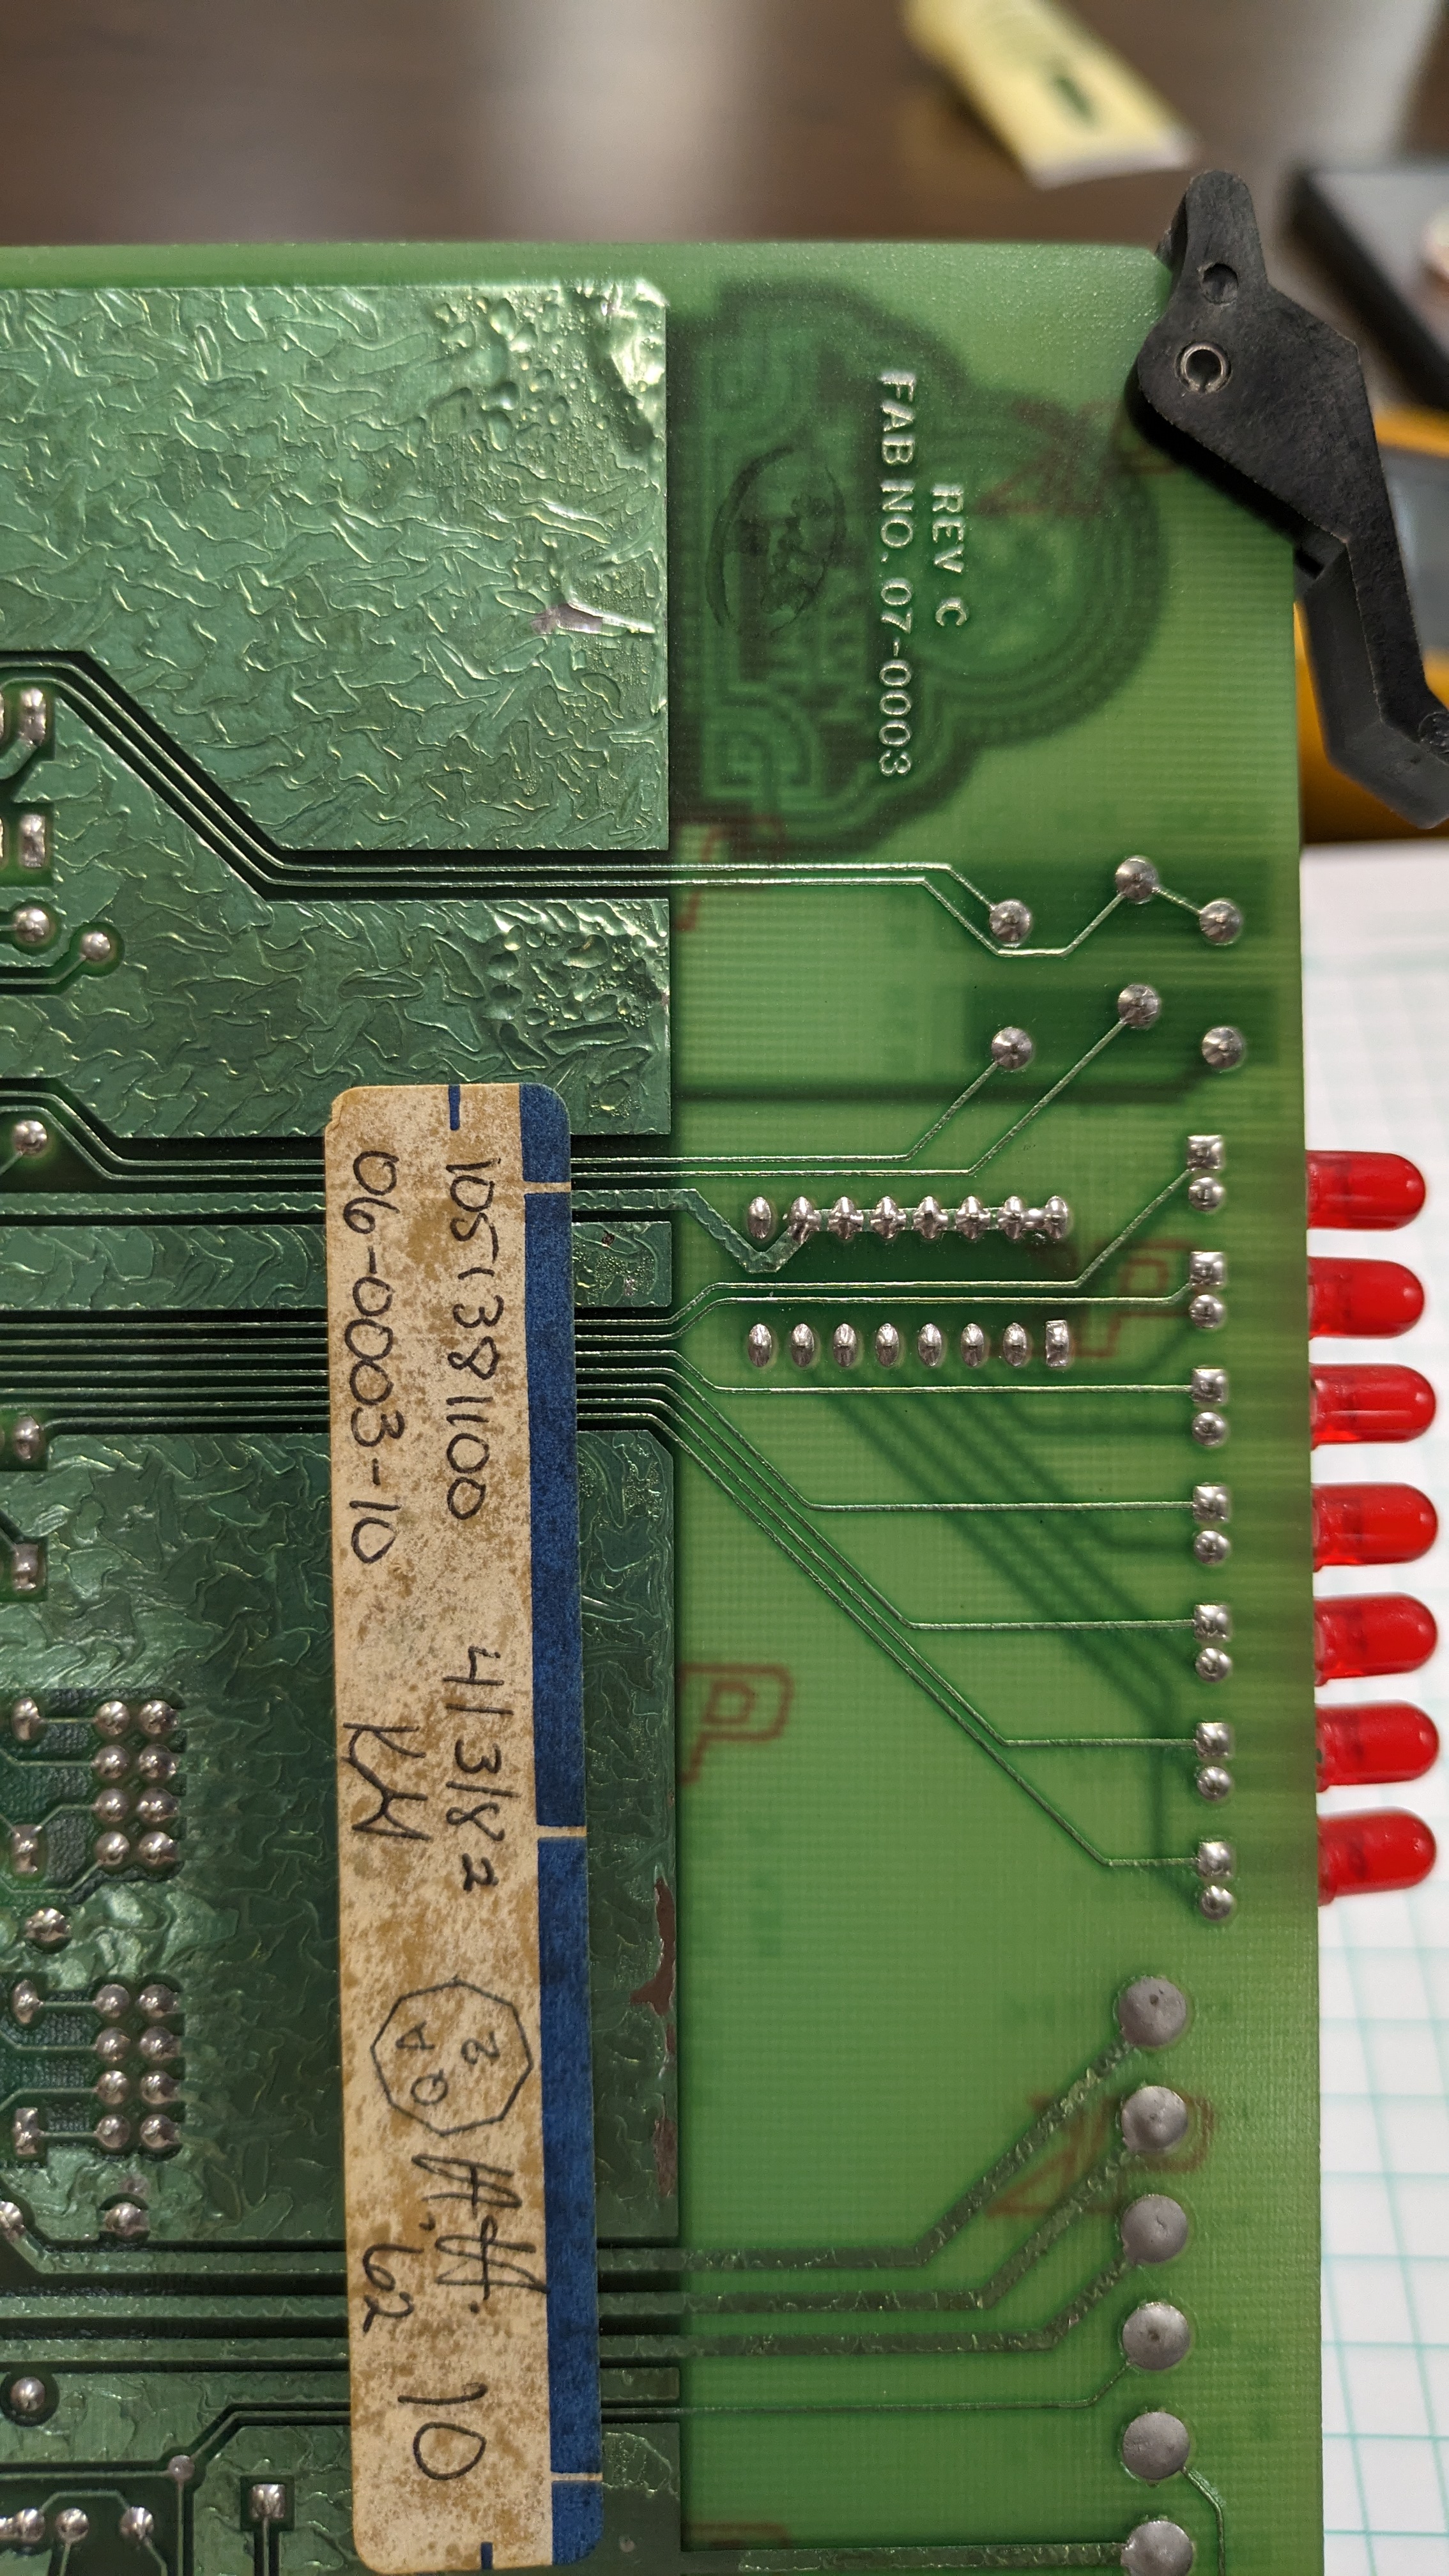 REV C
FAB NO. 07-0003
1051381100 4/13/82
06-0003-10 KM
B
A Q
10
62